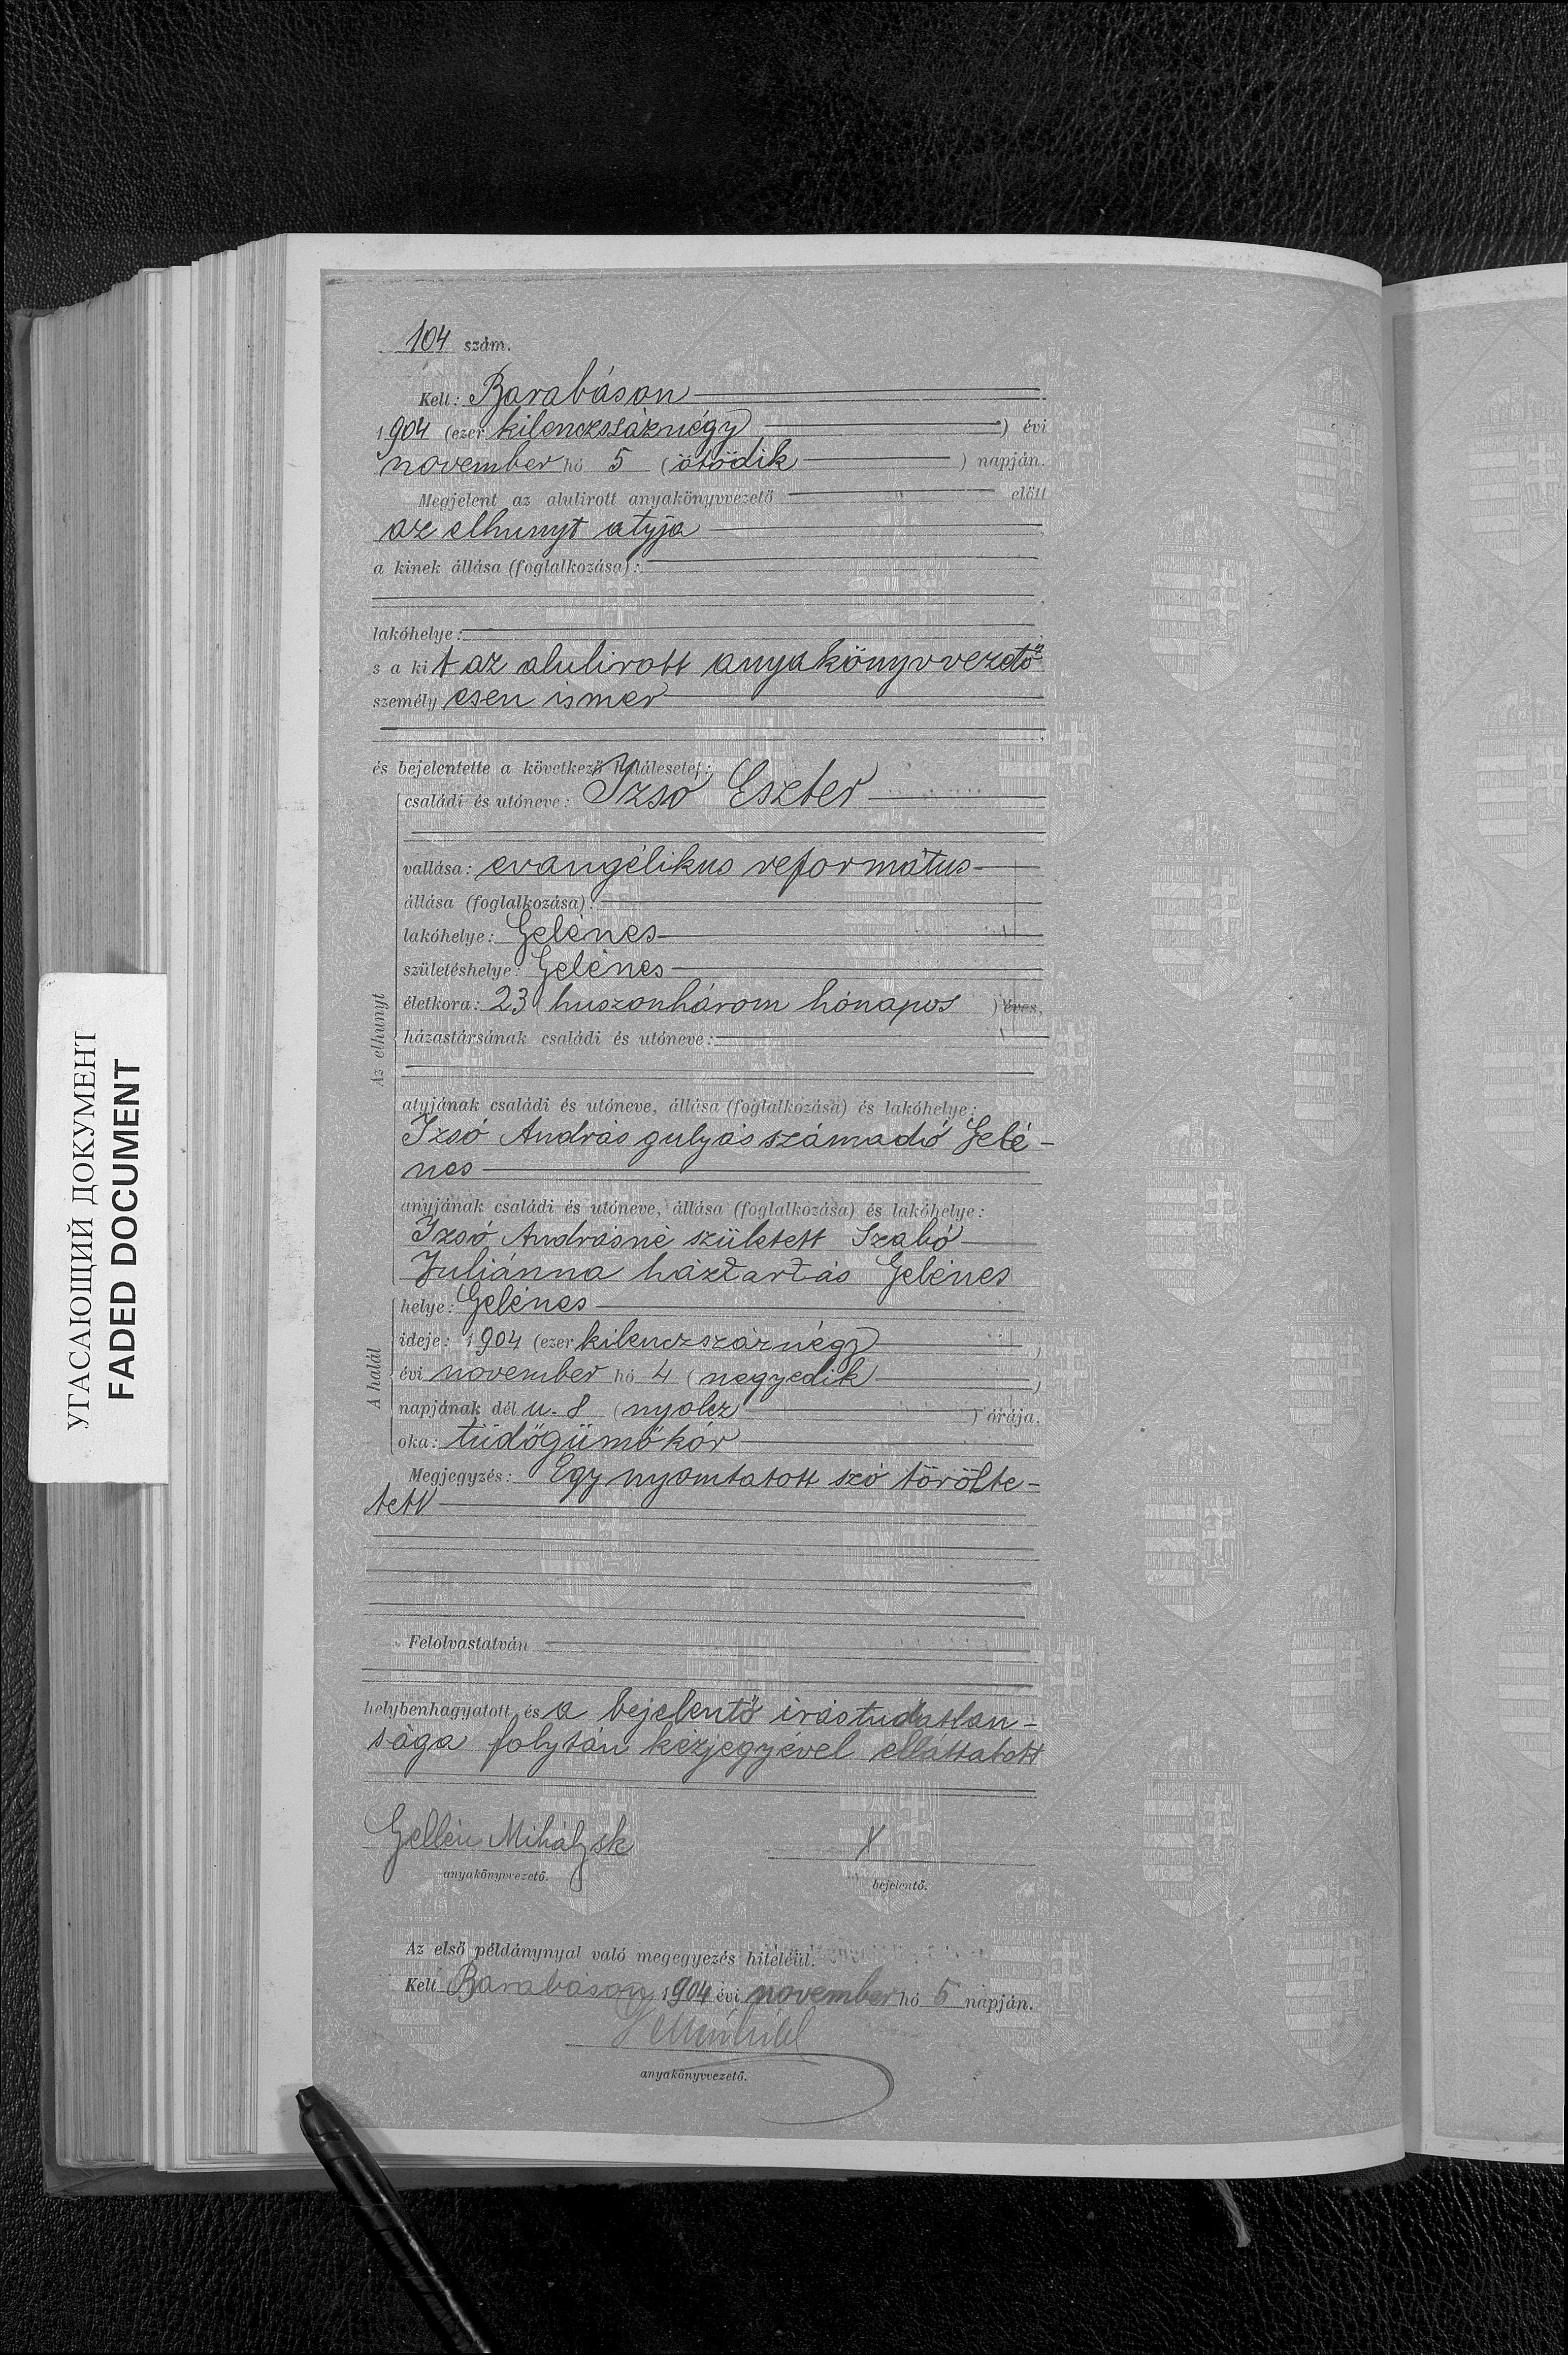 УГАСАЮЩИЙ ДОКУМЕНТ
FADED DOCUMENT
104 szám.
Kelt: Barabáson
1904 (ezer kilenczszáznégy) évi
november hó 5 (ötödik) napján.
Megjelent az alulirott anyakönyvvezető előtt
az elhunyt atyja
a kinek állása (foglalkozása):
lakóhelye:
s a kit az alulirott anyakönyvvezető
személyesen ismer
és bejelentette a következő halálesetet:
Az elhunyt
családi és utóneve: Izsó Eszter
vallása: evangélikus református
állása (foglalkozása):
lakóhelye: Gelénes
születéshelye: Gelénes
életkora: 23 (huszonhárom hónapos) éves,
házastársának családi és utóneve:
atyjának családi és utóneve, állása (foglalkozása) és lakóhelye:
Izsó András gulyás számadó Gelé-
nes
anyjának családi és utóneve, állása (foglalkozása) és lakóhelye:
Izsó Andrásné született Szabó
Juliánna háztartás Gelénes
A halál
helye: Gelénes
ideje: 1904 (ezer kilenczszáznégy)
évi november hó 4 (negyedik)
napjának dél u. 8 (nyolcz) órája.
oka: tüdőgümőkór
Megjegyzés: Egy nyomtatott szó törölte-
tett
Felolvastatván
helybenhagyatott és a bejelentő irástudatlan-
sága folytán kézjegyével elláttatott
Gellén Mihály sk X
anyakönyvvezető. bejelentő.
Az első példánynyal való megegyezés hiteléül.
Kelt Barabáson 1904 évi november hó 5 napján.
anyakönyvvezető.